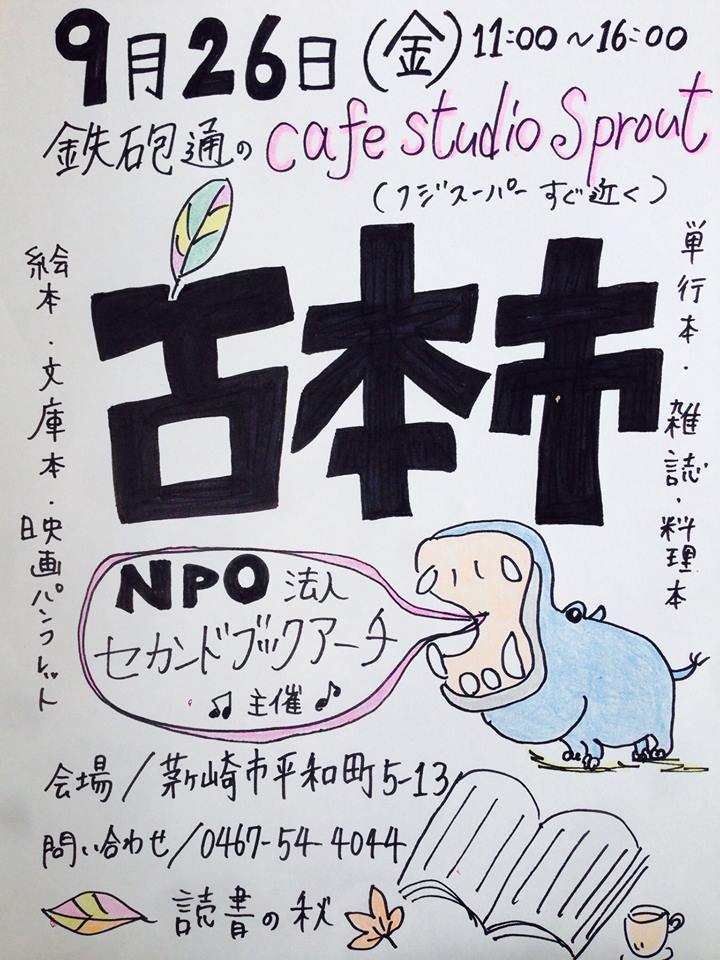 9月26日(金)11:00～16:00
鉄砲通の cafe studio Sprout
(フジスーパー すぐ近く)
古本市
単行本・雑誌・料理本
絵本・文庫本・映画パンフレット
NPO法人
セカンドブックアーチ
♫ 主催 ♪
会場/茅ヶ崎市平和町5-13
問い合わせ/0467-54-4044
読書の秋